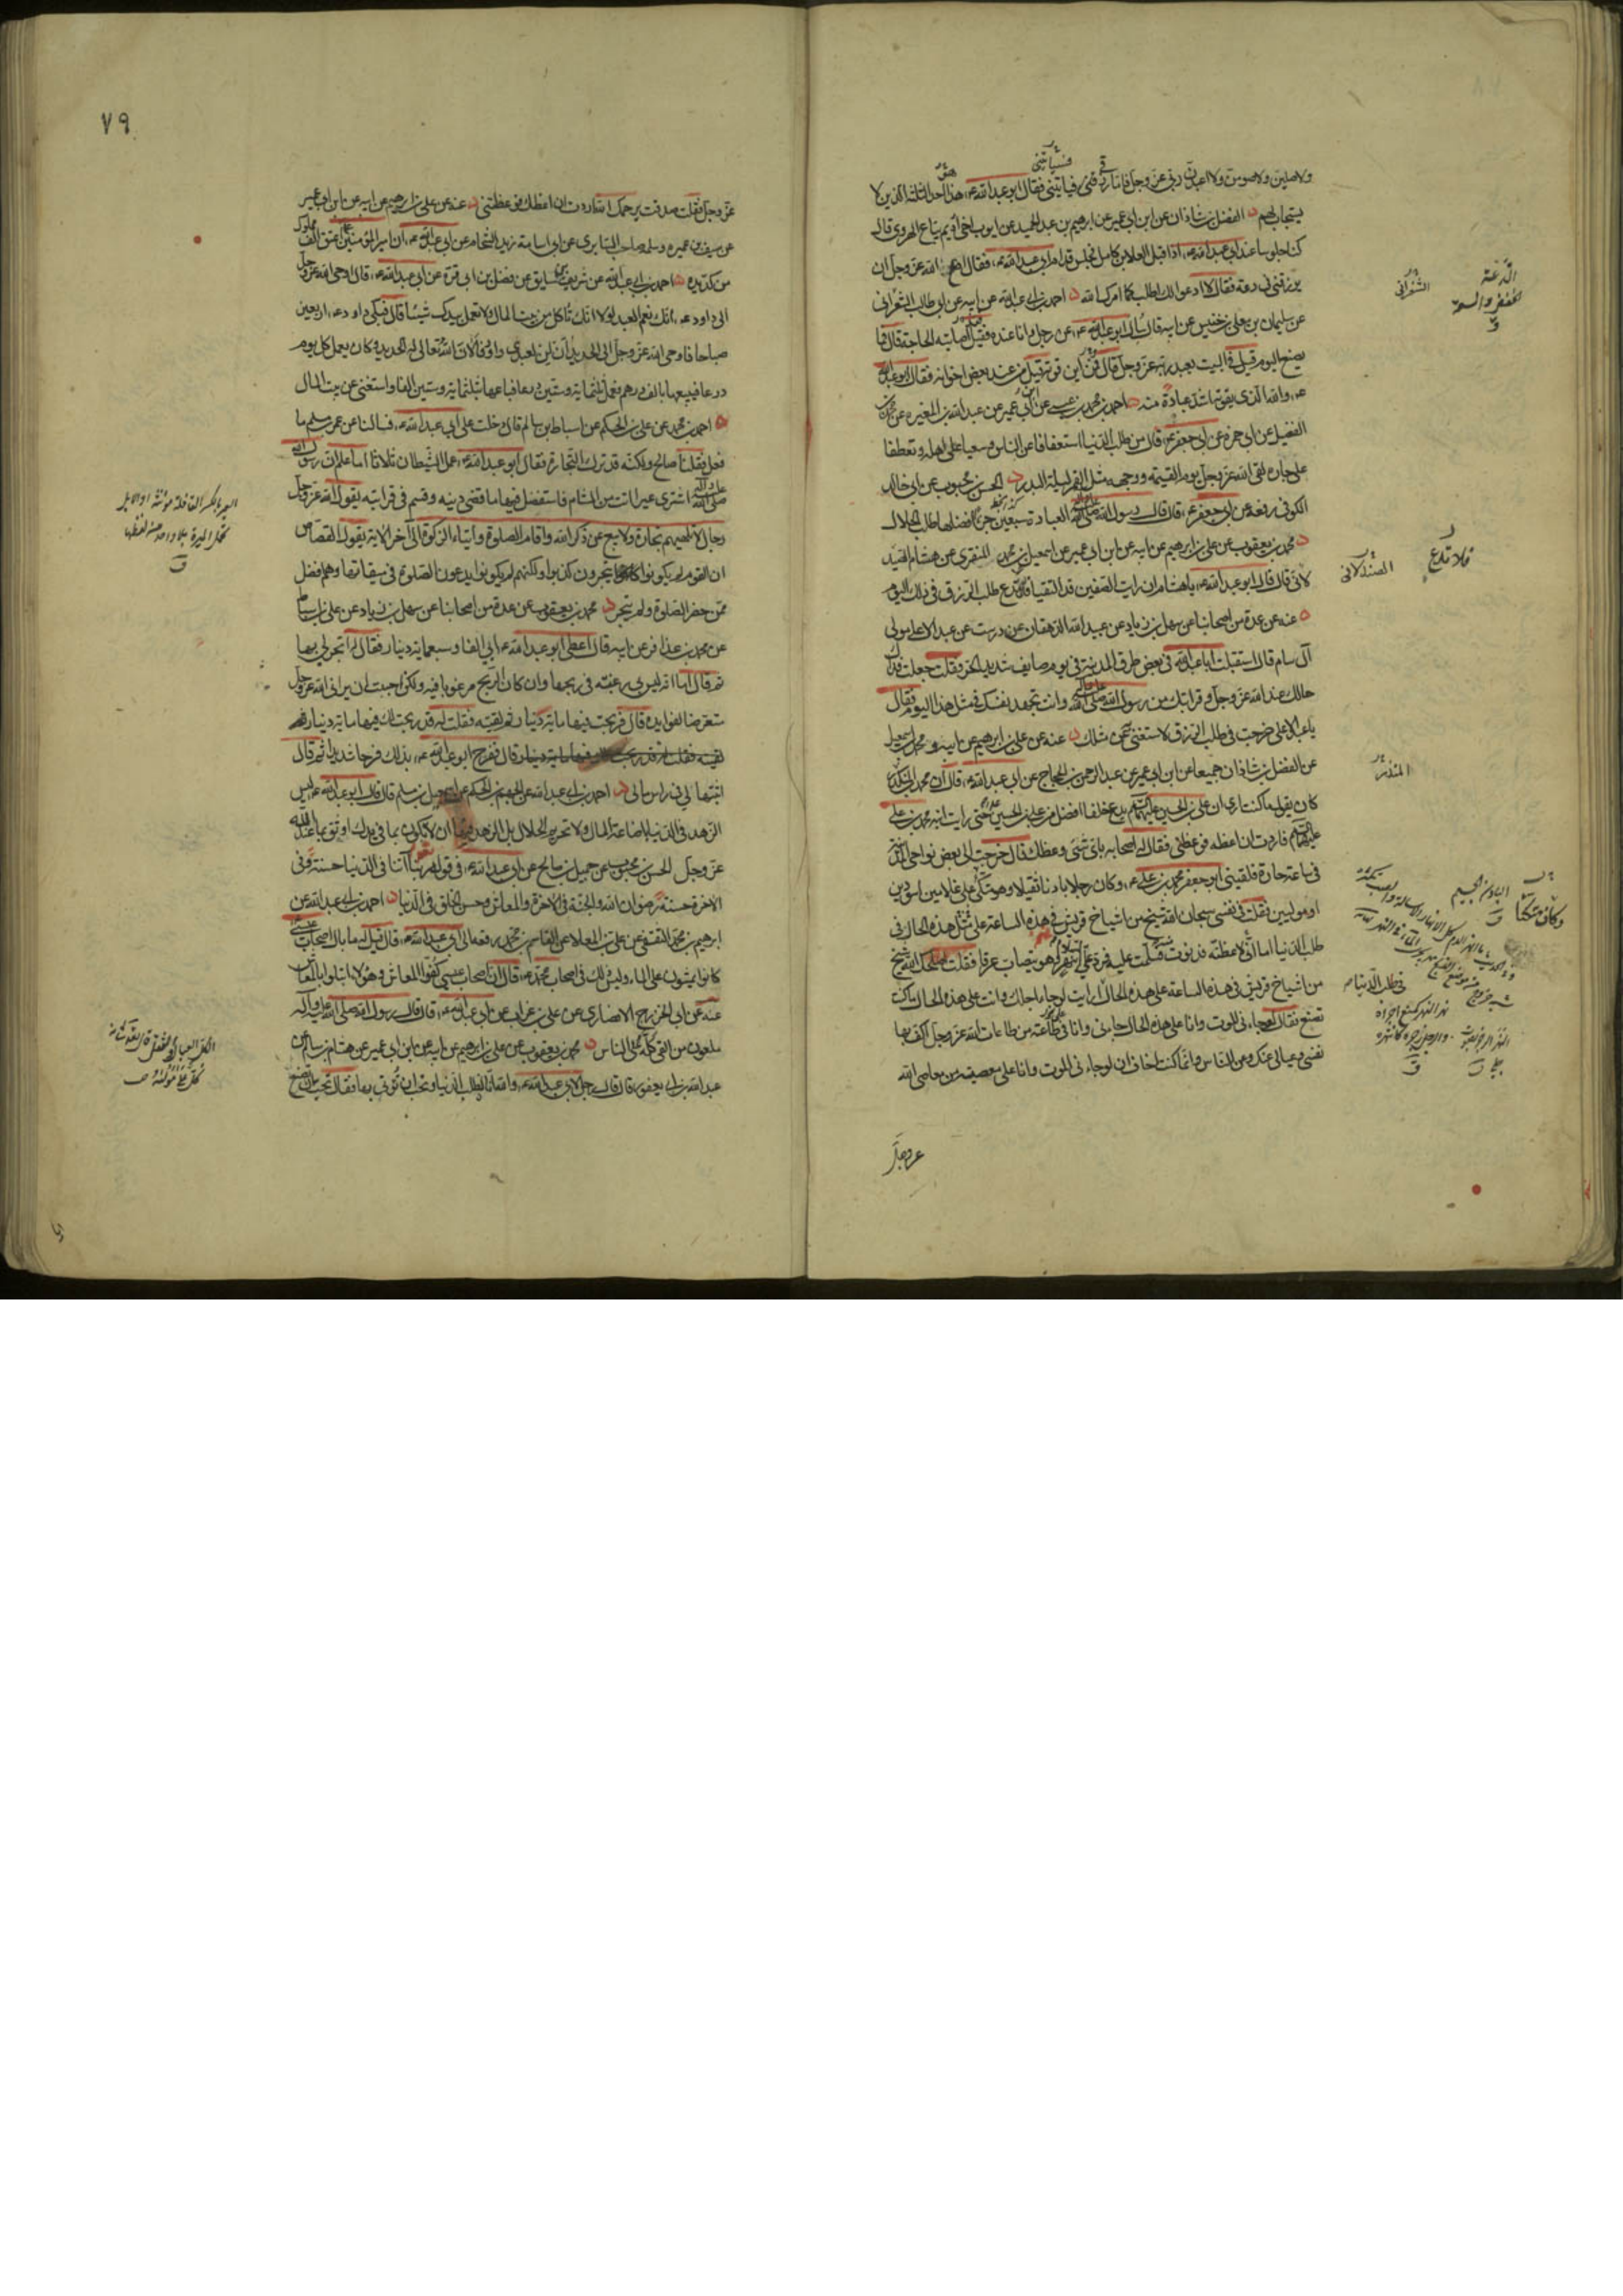 ولاصلين ولاصومن ولاعبدن ربي عز وجل فاما رزقي فسيأتيني فقال ابو عبد الله ع هذا احد الثلثة الذين لا
يستجاب لهم الفضل بن شاذان عن ابن ابي عمير عن ابرهيم بن عبد الحميد عن ايوب اخي اديم بياع الهروي قال
كنا جلوسا عند ابي عبد الله ع اذا قبل العلاء بن كامل فجلس قدام ابي عبد الله ع فقال ادع الله عز وجل ان
يرزقني في دعة فقال لا ادعو لك اطلب كما امرك الله احمد بن ابي عبد الله عن ابيه عن ابي طالب الشعراني
عن سليمان بن معلى بن خنيس عن ابيه قال سأل ابو عبد الله ع عن رجل وانا عنده فقيل اصابته الحاجة قال فما
يصنع اليوم قيل في البيت يعبد ربه عز وجل قال فمن اين قوته قيل من عند بعض اخوانه فقال ابو عبد الله
ع والله الذي يقوته اشد عبادة منه احمد بن محمد بن عيسى عن ابن ابي عمير عن عبد الله بن المغيره عن محمد بن
الفضيل عن ابي حمزه عن ابي جعفر ع قال من طلب الدنيا استعفافا عن الناس وسعيا على اهله وتعطفا
على جاره لقى الله عز وجل يوم القيمة ووجهه مثل القمر ليلة البدر الحسن بن محبوب عن ابي خالد
الكوفي رفعه عن ابي جعفر ع قال قال رسول الله صلى الله عليه واله العبادة سبعين جزءا افضلها طلب الحلال
محمد بن يعقوب عن علي بن ابرهيم عن ابيه عن ابن ابي عمير عن اسمعيل بن محمد المنقري عن هشام الصيد
لاني قال قال ابو عبد الله ع يا هشام ان رايت الصفين قد التقيا فلا تدع طلب الرزق في ذلك اليوم
عنه عن عدة من اصحابنا عن سهل بن زياد عن عبيد الله الدهقان عن درست عن عبد الاعلى مولى
آل سام قال استقبلت ابا عبد الله في بعض طرق المدينة في يوم صايف شديد الحر فقلت جعلت فداك
حالك عند الله عز وجل وقرابتك من رسول الله صلى الله عليه واله وانت تجهد نفسك في مثل هذا اليوم فقال
يا عبد الاعلى خرجت في طلب الرزق لاستغني عن مثلك عنه عن علي بن ابرهيم عن ابيه ومحمد بن اسمعيل
عن الفضل بن شاذان جميعا عن ابن ابي عمير عن عبد الرحمن بن الحجاج عن ابي عبد الله ع قال ان محمد بن المنكدر
كان يقول ما كنت ارى ان علي بن الحسين عليهما السلم يدع خلفا افضل من علي بن الحسين حتى رايت ابنه محمد بن علي
عليهما السلم فاردت ان اعظه فوعظني فقال له اصحابه باي شئ وعظك قال خرجت الى بعض نواحي المدينة
في ساعة حارة فلقيني ابو جعفر محمد بن علي ع وكان رجلا بادنا ثقيلا وهو متكئ على غلامين اسودين
او موليين فقلت في نفسي سبحان الله شيخ من اشياخ قريش في هذه الساعة على مثل هذه الحال في
طلب الدنيا اما اني لاعظنه فدنوت فسلمت عليه فرد علي السلام بنهر وهو يتصاب عرقا فقلت اصلحك الله شيخ
من اشياخ قريش في هذه الساعة على هذه الحال ارايت لو جاء اجلك وانت على هذه الحال ما كنت
تصنع فقال لو جاءني الموت وانا على هذه الحال جاءني وانا في طاعة من طاعات الله عز وجل اكف بها
نفسي وعيالي عنك وعن الناس وانما كنت اخاف ان لو جاءني الموت وانا على معصية من معاصي الله
عز وجل
الدعة
الخفض والسعة
ق
الشعراني
فلا تدع
الصيدلاني
وكان متكئا
البادن الجسيم
في طلب الدنيا
٧٩
عز وجل فقلت صدقت يرحمك الله اردت ان اعظك فوعظتني عنه عن علي بن ابرهيم عن ابيه عن ابن ابي عمير
عن سيف بن عميره وسلمه صاحب السابري عن ابي اسامة زيد الشحام عن ابي عبد الله ع ان امير المؤمنين ع اعتق الف مملوك
من كد يده احمد بن ابي عبد الله عن شريف بن سابق عن فضل بن ابي قرة عن ابي عبد الله ع قال اوحى الله عز وجل
الى داود ع انك نعم العبد لولا انك تأكل من بيت المال ولا تعمل بيدك شيئا قال فبكى داود ع اربعين
صباحا فاوحى الله عز وجل الى الحديد ان لن لعبدي داود فالان الله تعالى له الحديد وكان يعمل كل يوم
درعا فيبيعها بالف درهم فعمل ثلثمائة وستين درعا فباعها بثلثمائة وستين الفا واستغنى عن بيت المال
احمد بن محمد عن علي بن الحكم عن اسباط بن سالم قال دخلت على ابي عبد الله ع فسالنا عن عمر بن مسلم ما
فعل فقلنا صالح ولكنه قد ترك التجارة فقال ابو عبد الله ع عمل الشيطان ثلاثا اما علم ان رسول الله
صلى الله عليه واله اشترى عيرا اتت من الشام فاستفضل فيها ما قضى دينه وقسم في قرابته يقول الله عز وجل
رجال لا تلهيهم تجارة ولا بيع عن ذكر الله واقام الصلوة وايتاء الزكوة الى آخر الاية يقول القصاص
ان القوم لم يكونوا يتجرون كذبوا ولكنهم لم يكونوا يدعون الصلوة في ميقاتها وهم افضل
ممن حضر الصلوة ولم يتجر محمد بن يعقوب عن عدة من اصحابنا عن سهل بن زياد عن علي بن اسباط
عن محمد بن عذافر عن ابيه قال اعطى ابو عبد الله ع ابي الفا وسبعمائة دينار فقال له اتجر لي بها
ثم قال اما انه ليس لي رغبة في ربحها وان كان الربح مرغوبا فيه ولكن احببت ان يراني الله عز وجل
متعرضا لفوايده قال فربحت فيها مائة دينار ثم لقيته فقلت له قد ربحت لك فيها مائة دينار
قال ففرح ابو عبد الله ع بذلك فرحا شديدا ثم قال
اثبتها لي في راس مالي احمد بن ابي عبد الله عن الجهم بن الحكم عن اسمعيل بن مسلم قال قال ابو عبد الله ع ليس
الزهد في الدنيا باضاعة المال ولا تحريم الحلال بل الزهد فيها ان لا تكون بما في يدك اوثق بما عند الله
عز وجل الحسن بن محبوب عن جميل بن صالح عن ابي عبد الله ع في قوله ربنا آتنا في الدنيا حسنة وفي
الاخرة حسنة رضوان الله والجنة في الاخرة والمعاش وحسن الخلق في الدنيا احمد بن ابي عبد الله عن
ابرهيم بن محمد الثقفي عن علي بن المعلا عن القاسم بن محمد رفعه الى ابي عبد الله ع قال قيل له ما بال اصحاب عيسى
كانوا يمشون على الماء وليس ذلك في اصحاب محمد ص قال ان اصحاب عيسى كفوا المعاش وهؤلاء ابتلوا بالمعاش
عنه عن ابي الخزرج الانصاري عن علي بن غراب عن ابي عبد الله ع قال قال رسول الله صلى الله عليه وآله
ملعون من القى كله على الناس محمد بن يعقوب عن علي بن ابرهيم عن ابيه عن ابن ابي عمير عن هشام بن سالم عن
عبد الله بن ابي يعفور قال قال رجل لابي عبد الله ع والله انا لنطلب الدنيا ونحب ان نؤتى بها فقال تحب ان تصنع
العير بالكسر القافلة مؤنثة او الابل
تحمل الميرة بلا واحد من لفظها
ق